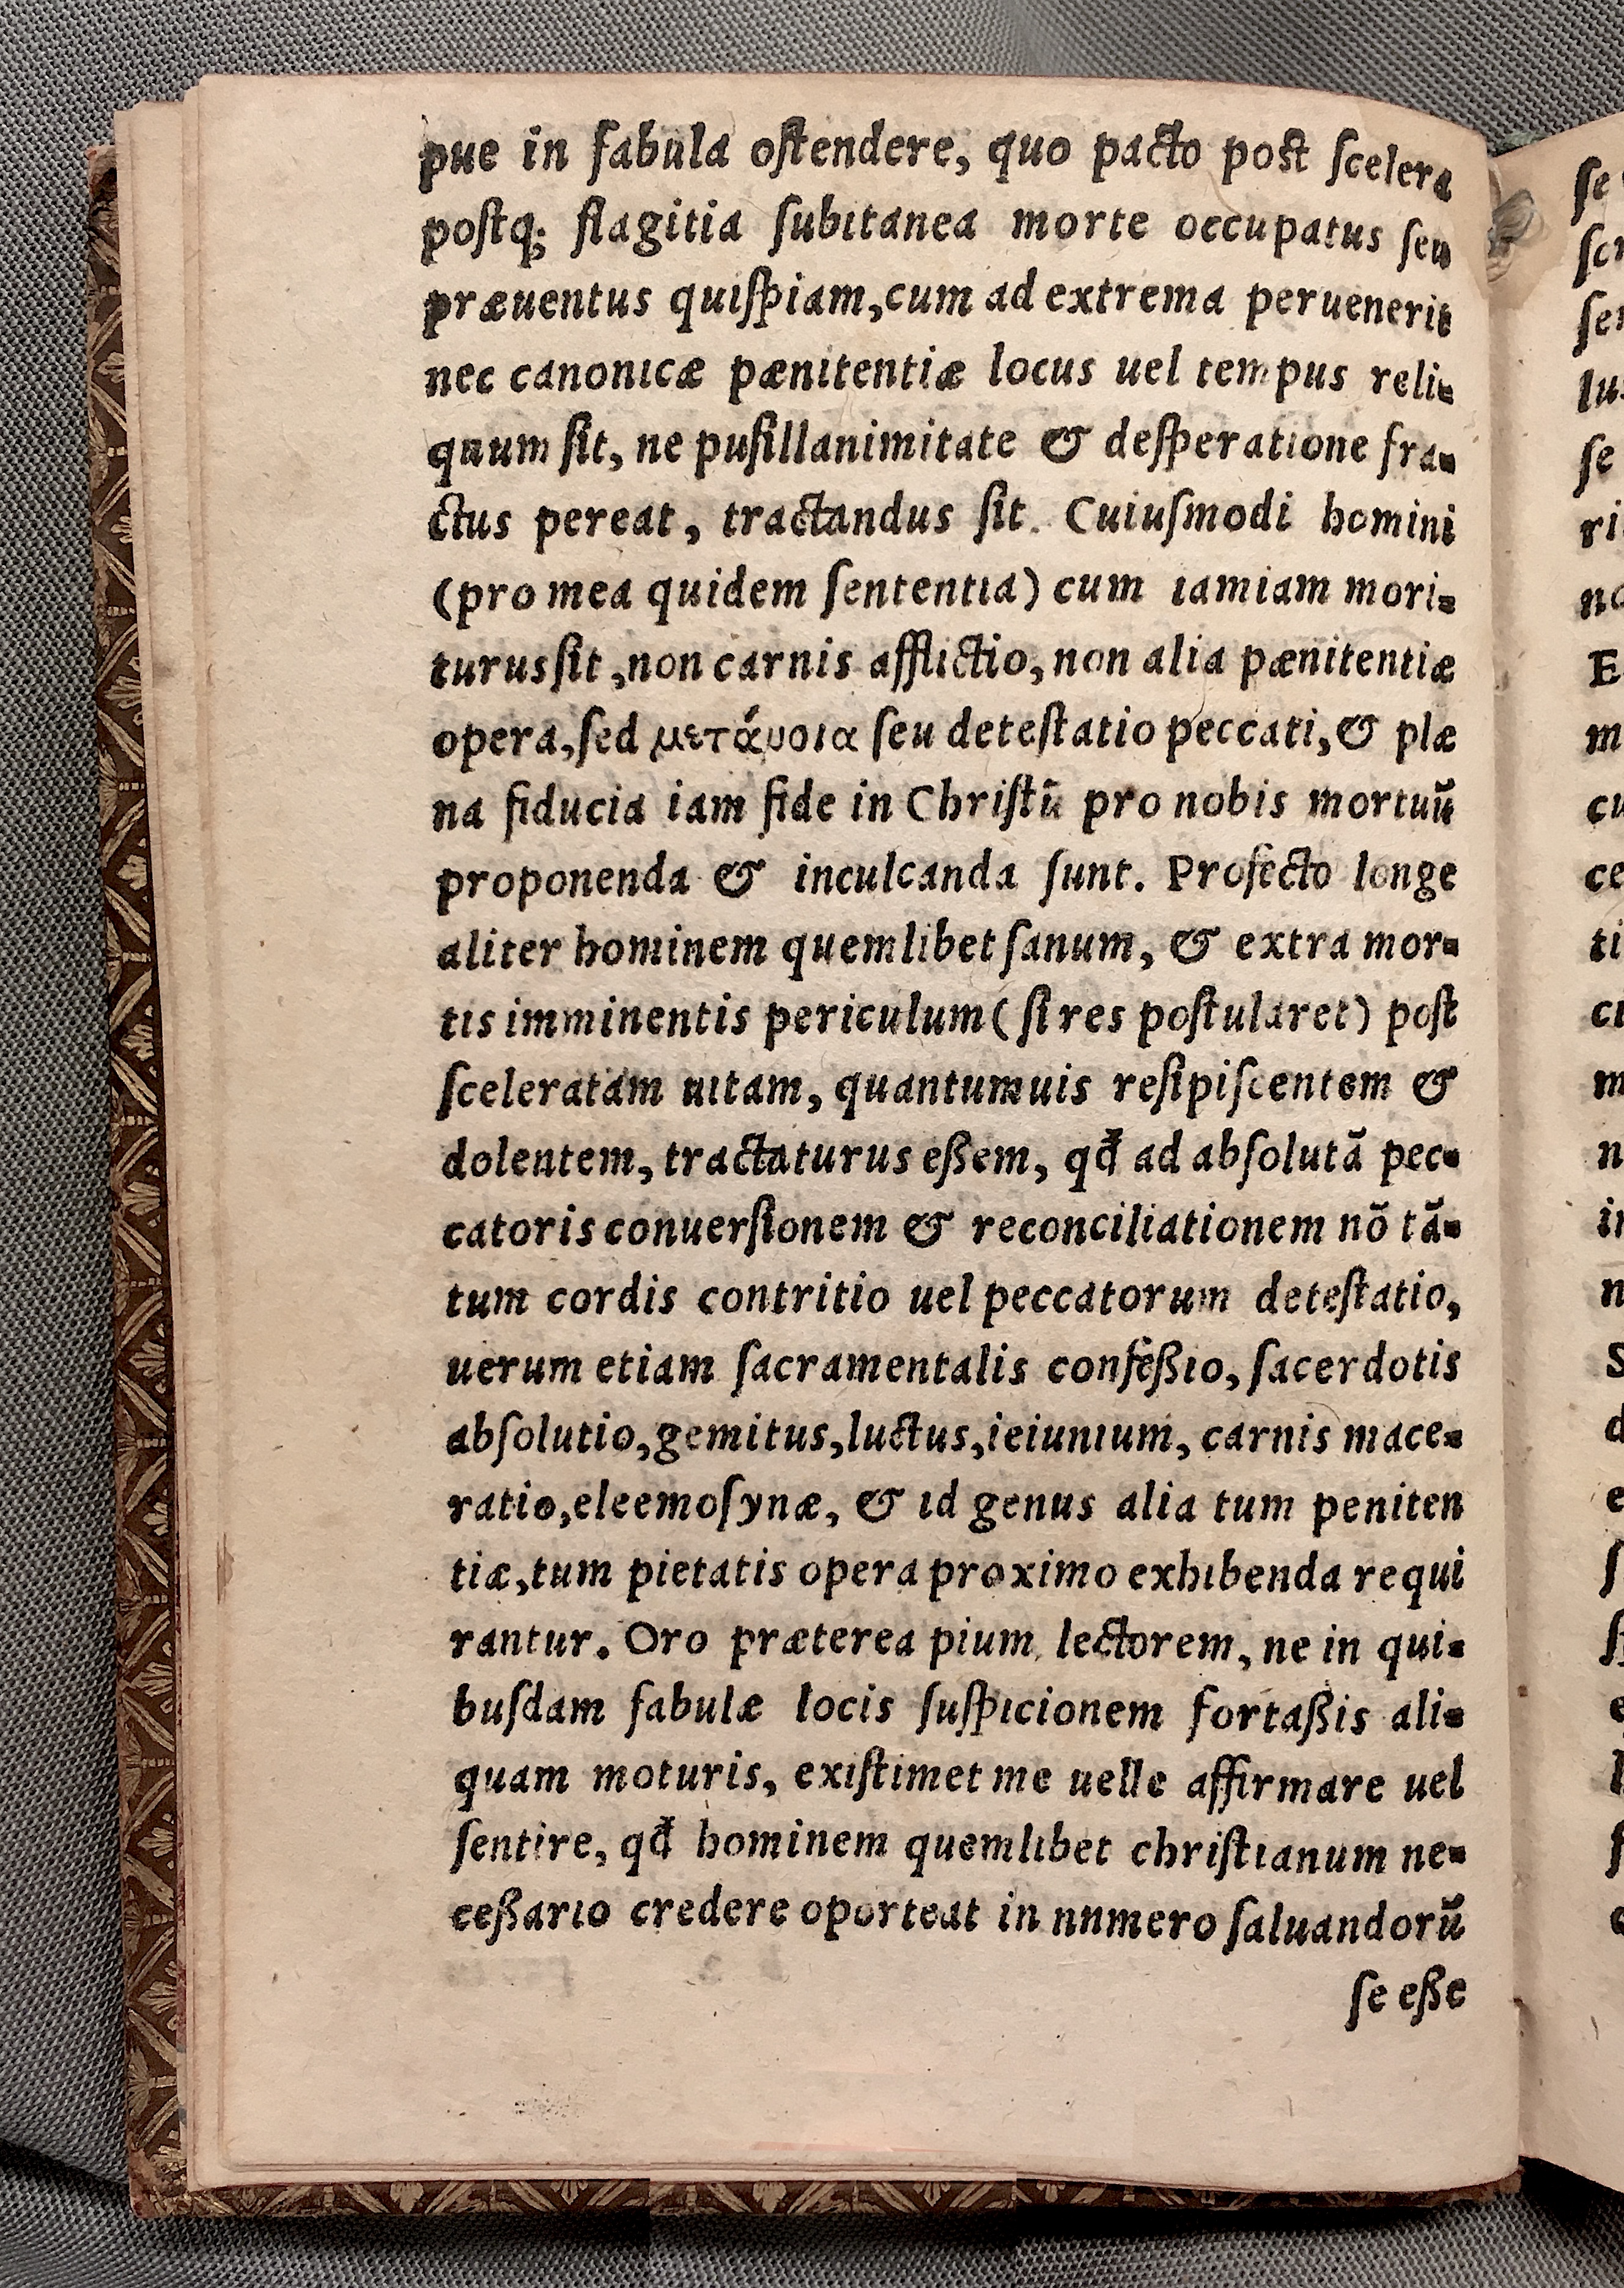 pue in fabula oſtendere, quo pacto poſt ſcelera
poſtq; flagitia ſubitanea morte occupatus ſeu
præuentus quiſpiam, cum ad extrema peruenerit
nec canonicæ pænitentiæ locus uel tempus reli-
quum ſit, ne puſillanimitate & deſperatione fra-
ctus pereat, tractandus ſit. Cuiuſmodi homini
(pro mea quidem ſententia) cum iamiam mori-
turus ſit, non carnis afflictio, non alia pænitentiæ
opera, ſed μετάνοια ſeu deteſtatio peccati, & plæ
na fiducia iam fide in Chriſtū pro nobis mortuū
proponenda & inculcanda ſunt. Profecto longe
aliter hominem quemlibet ſanum, & extra mor-
tis imminentis periculum (ſi res poſtularet) poſt
ſceleratam uitam, quantumuis reſipiſcentem &
dolentem, tractaturus eßem, qđ ad abſolutā pec-
catoris conuerſionem & reconciliationem nō tā-
tum cordis contritio uel peccatorum deteſtatio,
uerum etiam ſacramentalis confeßio, ſacerdotis
abſolutio, gemitus, luctus, ieiunium, carnis mace-
ratio, eleemoſynæ, & id genus alia tum peniten
tiæ, tum pietatis opera proximo exhibenda requi
rantur. Oro præterea pium lectorem, ne in qui-
buſdam fabulæ locis ſuſpicionem fortaßis ali-
quam moturis, exiſtimet me uelle affirmare uel
ſentire, qđ hominem quemlibet chriſtianum ne-
ceßario credere oporteat in nnmero ſaluandorū
ſe eße